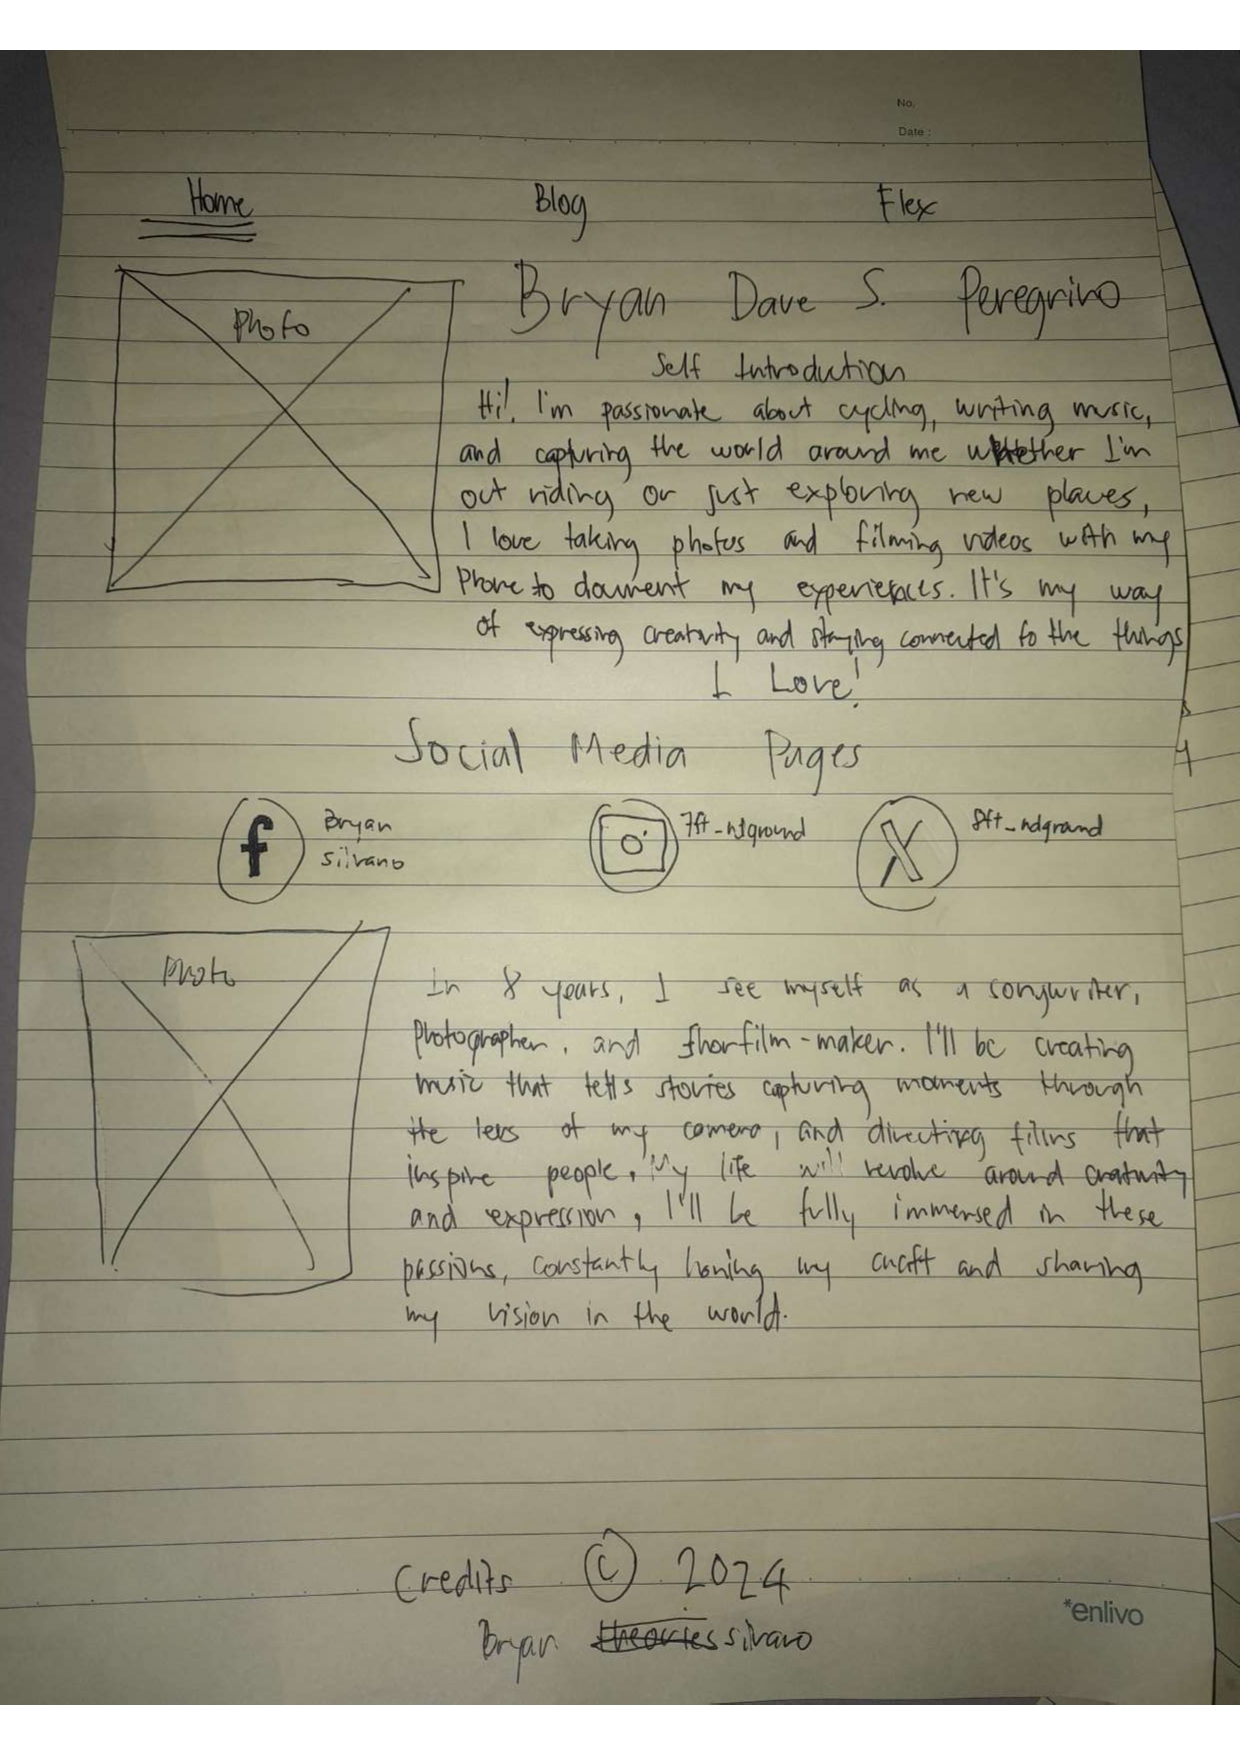 No.
Date :
Home Blog Flex
Photo
Bryan Dave S. Peregrino
Self Introduction
Hi! I'm passionate about cycling, writing music,
and capturing the world around me whether I'm
out riding or just exploring new places,
I love taking photos and filming videos with my
Phone to document my experiences. It's my way
of expressing creativity and staying connected to the things
I Love!
Social Media Pages
f Bryan
silvano
7ft_ndground
X 8ft_ndground
Photo
In 8 years, I see myself as a songwriter,
Photographer, and shorfilm-maker. I'll be creating
music that tells stories capturing moments through
the lens of my camera, and directing films that
inspire people, My life will revolve around crativity
and expression, I'll be fully immersed in these
passions, constantly honing my craft and sharing
my vision in the world.
Credits © 2024
*enlivo
Bryan silvano